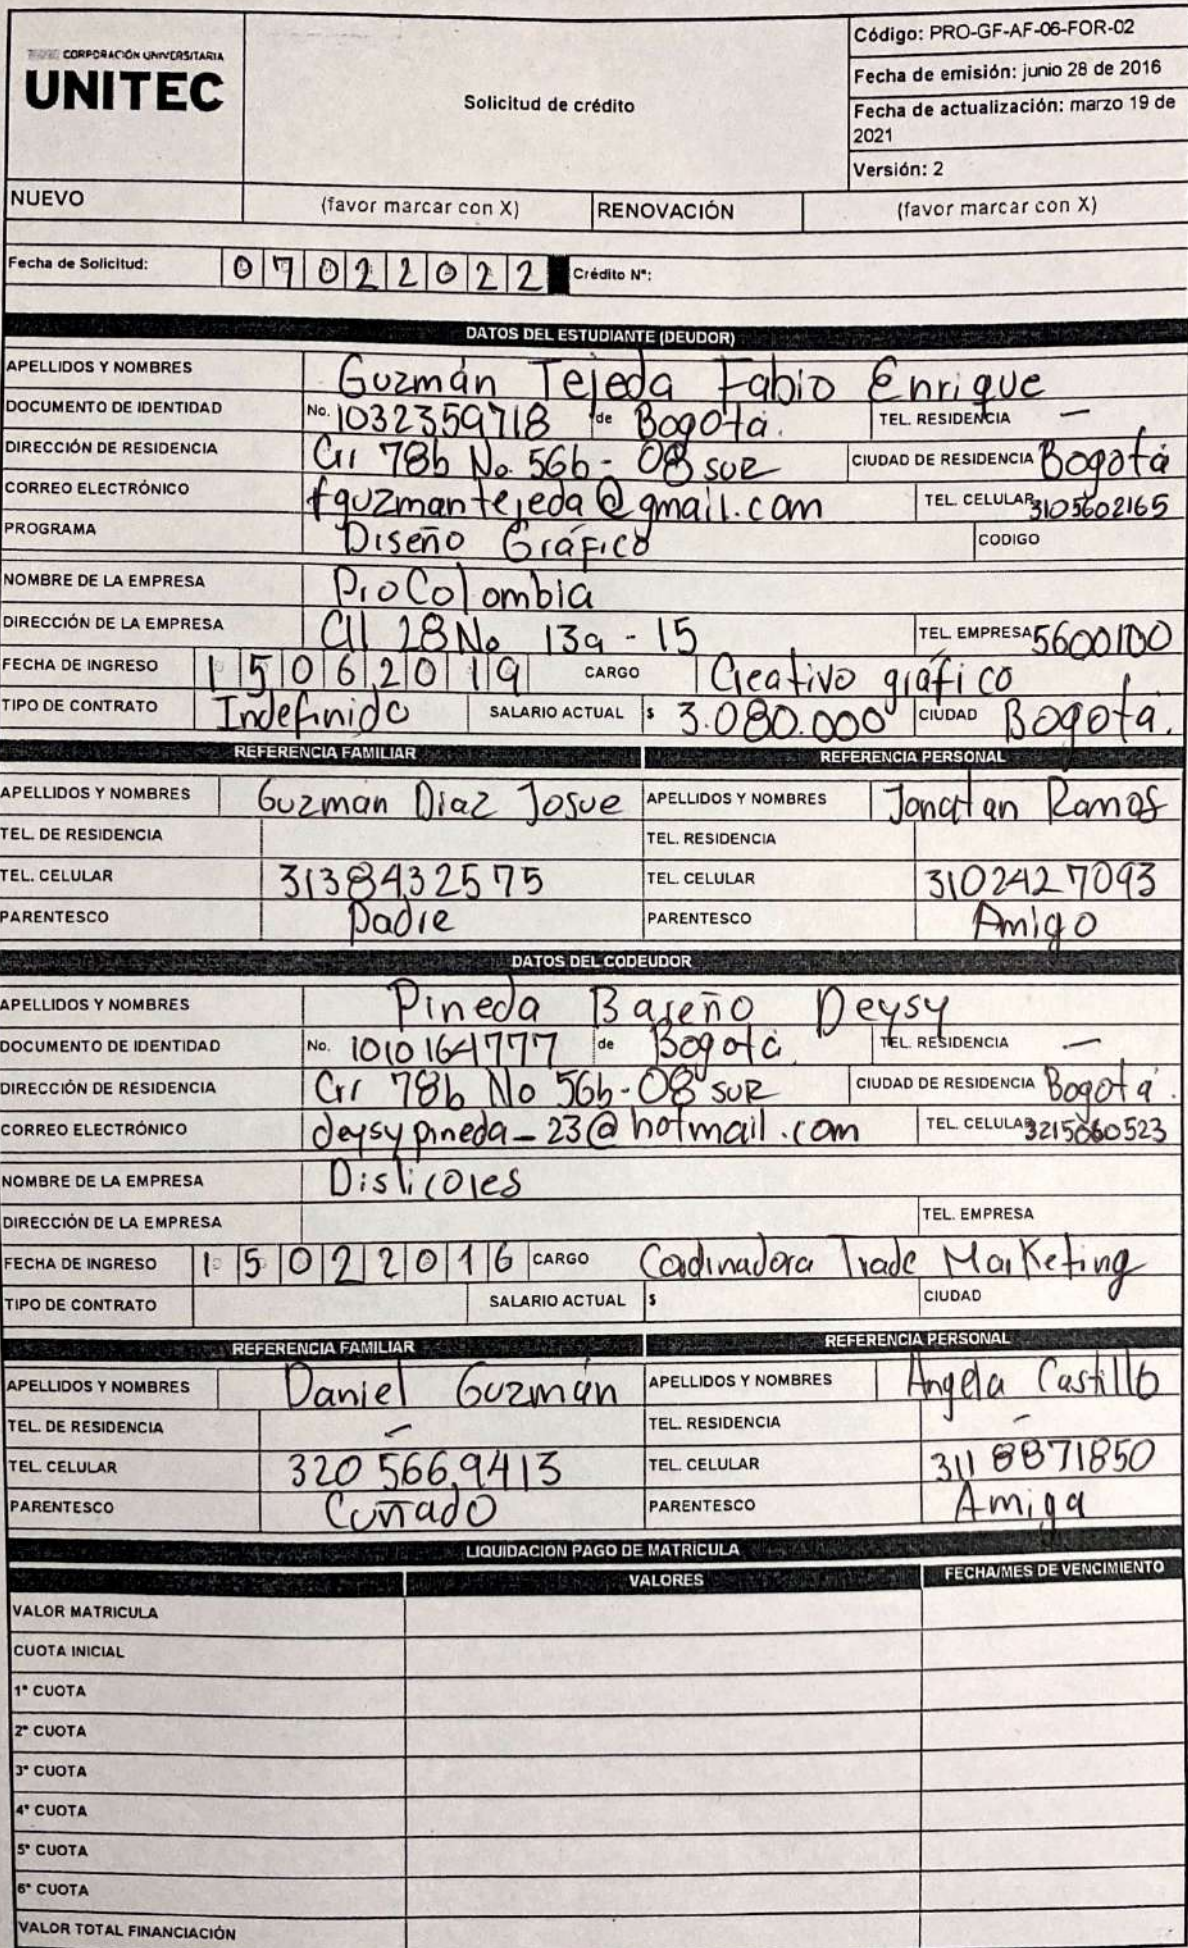 CORPORACIÓN UNIVERSITARIA
UNITEC
Solicitud de crédito
Código: PRO-GF-AF-06-FOR-02
Fecha de emisión: junio 28 de 2016
Fecha de actualización: marzo 19 de
2021
Versión: 2
NUEVO (favor marcar con X) RENOVACIÓN (favor marcar con X)
Fecha de Solicitud: 07022022 Crédito N°:
DATOS DEL ESTUDIANTE (DEUDOR)
APELLIDOS Y NOMBRES Guzmán Tejeda Fabio Enrique
DOCUMENTO DE IDENTIDAD No. 1032359718 de Bogotá. TEL. RESIDENCIA —
DIRECCIÓN DE RESIDENCIA Crr 78b No. 56b - 08 sur CIUDAD DE RESIDENCIA Bogotá
CORREO ELECTRÓNICO fguzmantejeda@gmail.com TEL. CELULAR 3105602165
PROGRAMA Diseño Gráfico CODIGO
NOMBRE DE LA EMPRESA ProColombia
DIRECCIÓN DE LA EMPRESA Cll 28 No 13a - 15 TEL. EMPRESA 5600100
FECHA DE INGRESO 15062019 CARGO Creativo gráfico
TIPO DE CONTRATO Indefinido SALARIO ACTUAL $ 3.080.000 CIUDAD Bogotá.
REFERENCIA FAMILIAR REFERENCIA PERSONAL
APELLIDOS Y NOMBRES Guzman Diaz Josue APELLIDOS Y NOMBRES Jonatan Ramos
TEL. DE RESIDENCIA TEL. RESIDENCIA
TEL. CELULAR 3138432575 TEL. CELULAR 3102427093
PARENTESCO Padre PARENTESCO Amigo
DATOS DEL CODEUDOR
APELLIDOS Y NOMBRES Pineda Bareño Deysy
DOCUMENTO DE IDENTIDAD No. 1010164777 de Bogotá TEL. RESIDENCIA —
DIRECCIÓN DE RESIDENCIA Crr 78b No 56b - 08 sur CIUDAD DE RESIDENCIA Bogotá.
CORREO ELECTRÓNICO deysypineda_23@hotmail.com TEL. CELULAR 3215060523
NOMBRE DE LA EMPRESA Dislicores
DIRECCIÓN DE LA EMPRESA TEL. EMPRESA
FECHA DE INGRESO 15022016 CARGO Cordinadora Trade Marketing
TIPO DE CONTRATO SALARIO ACTUAL $ CIUDAD
REFERENCIA FAMILIAR REFERENCIA PERSONAL
APELLIDOS Y NOMBRES Daniel Guzmán APELLIDOS Y NOMBRES Angela Castillo
TEL. DE RESIDENCIA - TEL. RESIDENCIA -
TEL. CELULAR 320 5669413 TEL. CELULAR 311 8871850
PARENTESCO Cuñado PARENTESCO Amiga
LIQUIDACION PAGO DE MATRICULA
VALORES FECHA/MES DE VENCIMIENTO
VALOR MATRICULA
CUOTA INICIAL
1° CUOTA
2° CUOTA
3° CUOTA
4° CUOTA
5° CUOTA
6° CUOTA
VALOR TOTAL FINANCIACIÓN